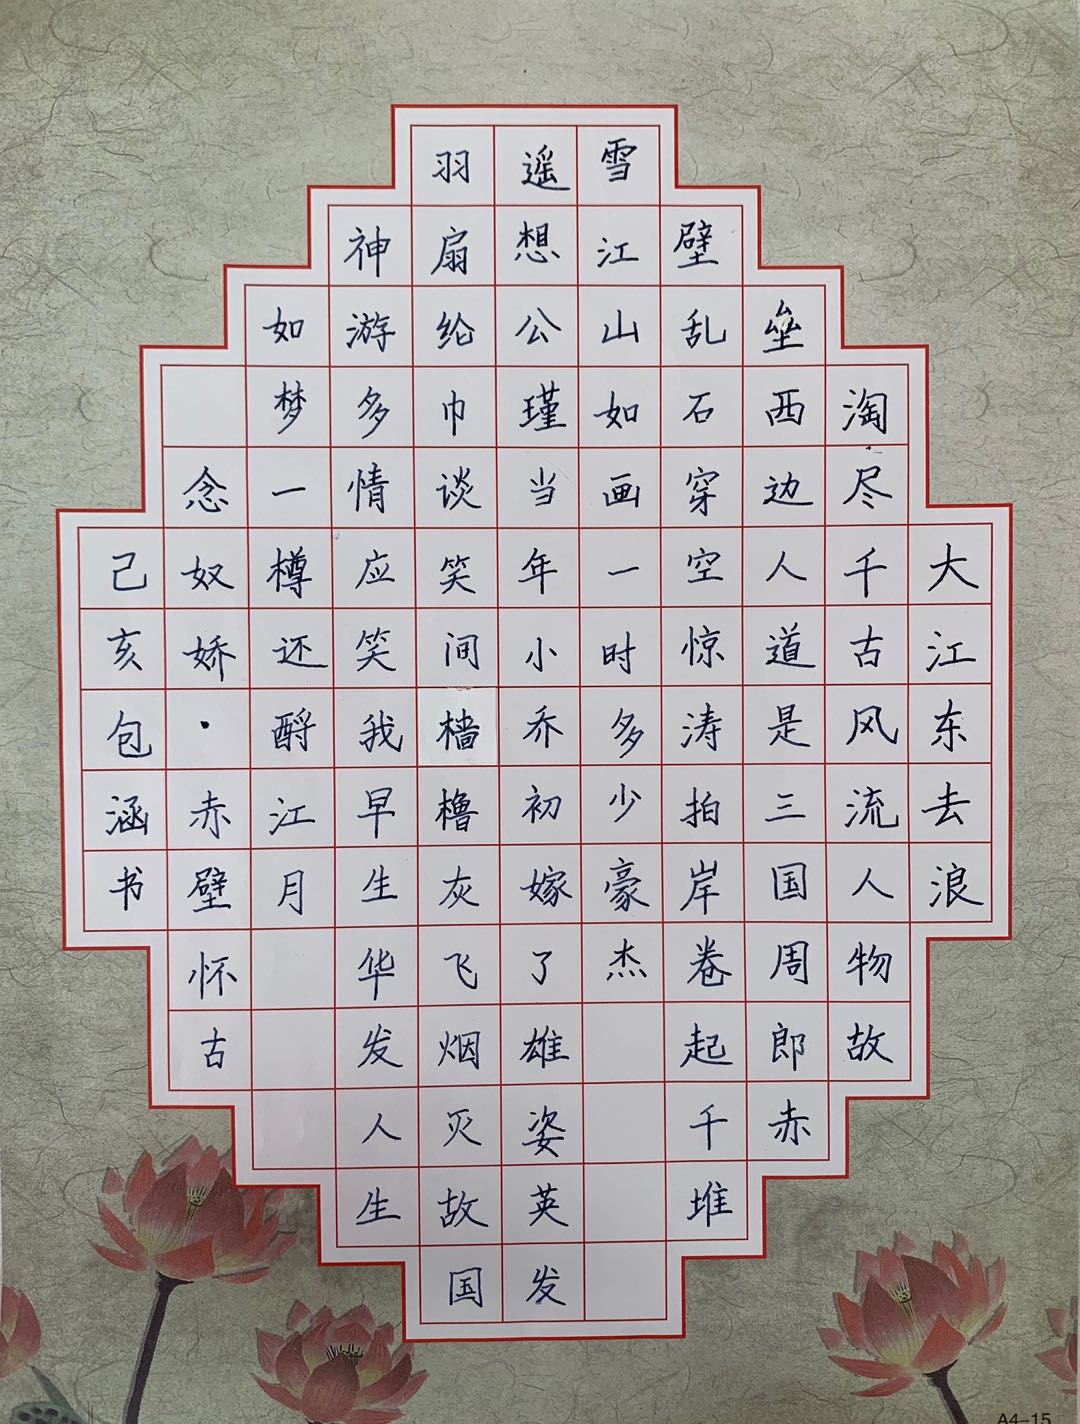 大江东去浪
淘尽千古风流人物故
垒西边人道是三国周郎赤
壁乱石穿空惊涛拍岸卷起千堆
雪江山如画一时多少豪杰
遥想公瑾当年小乔初嫁了雄姿英发
羽扇纶巾谈笑间樯橹灰飞烟灭故国
神游多情应笑我早生华发人生
如梦一樽还酹江月
念奴娇·赤壁怀古
己亥包涵书
A4-15